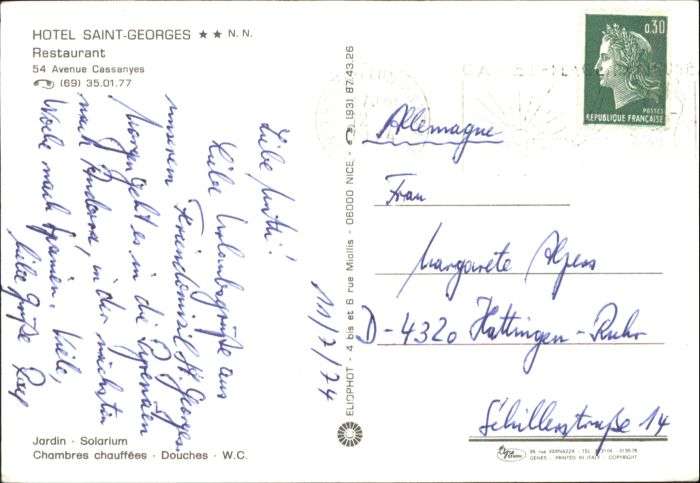 HOTEL SAINT-GEORGES ★★ N.N.
Restaurant
54 Avenue Cassanyes
(69) 35.01.77
Liebe Mutti!
Liebe Urlaubsgrüße aus
unserem Feriendomizil St. Georges
Morgen geht es in die Pyrenäen
nach Andorra, in der nächsten
Woche nach Spanien. Viele,
liebe Grüße
11/7/74
Jardin - Solarium
Chambres chauffées - Douches - W.C.
ELIOPHOT - 4 bis et 6 rue Miollis - 06000 NICE - (93) 87.43.26
0,30
POSTES
REPUBLIQUE FRANÇAISE
Allemagne
Frau
Margarete Alpers
D-4320 Hattingen-Ruhr
Schillerstraße 14
GENES - PRINTED IN ITALY - COPYRIGHT